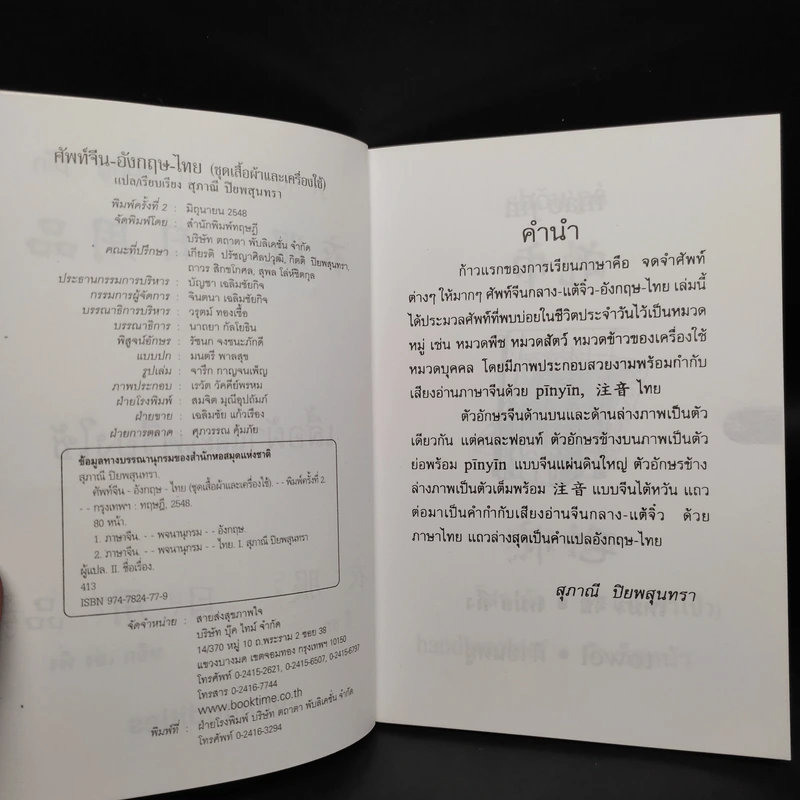 ศัพท์จีน-อังกฤษ-ไทย (ชุดเสื้อผ้าและเครื่องใช้)
แปล/เรียบเรียง สุภาณี ปิยพสุนทรา
พิมพ์ครั้งที่ 2 : มิถุนายน 2548
จัดพิมพ์โดย : สำนักพิมพ์ทฤษฎี
บริษัท ตถาตา พับลิเคชั่น จำกัด
คณะที่ปรึกษา : เกียรติ ปรัชญาศิลปวุฒิ, กิตติ ปิยพสุนทรา,
ถาวร สิกขโกศล, สุพล โล่ห์ชิตกุล
ประธานกรรมการบริหาร : บัญชา เฉลิมชัยกิจ
กรรมการผู้จัดการ : จินตนา เฉลิมชัยกิจ
บรรณาธิการบริหาร : วรุตม์ ทองเชื้อ
บรรณาธิการ : นาถยา กัลโยธิน
พิสูจน์อักษร : รัชนก จงชนะภักดี
แบบปก : มนตรี พาลสุข
รูปเล่ม : จารึก กาญจนเพ็ญ
ภาพประกอบ : เรวัต วัคคีย์พรหม
ฝ่ายโรงพิมพ์ : สมจิต มุณีอุปถัมภ์
ฝ่ายขาย : เฉลิมชัย แก้วเรือง
ฝ่ายการตลาด : ศุภวรรณ คุ้มภัย
ข้อมูลทางบรรณานุกรมของสำนักหอสมุดแห่งชาติ
สุภาณี ปิยพสุนทรา.
ศัพท์จีน - อังกฤษ - ไทย (ชุดเสื้อผ้าและเครื่องใช้). - - พิมพ์ครั้งที่ 2.
- - กรุงเทพฯ : ทฤษฎี, 2548.
80 หน้า.
1. ภาษาจีน. - - พจนานุกรม - - อังกฤษ.
2. ภาษาจีน. - - พจนานุกรม - - ไทย. I. สุภาณี ปิยพสุนทรา
ผู้แปล. II. ชื่อเรื่อง.
413
ISBN 974-7824-77-9
จัดจำหน่าย : สายส่งสุขภาพใจ
บริษัท บุ๊ค ไทม์ จำกัด
14/370 หมู่ 10 ถ.พระราม 2 ซอย 38
แขวงบางมด เขตจอมทอง กรุงเทพฯ 10150
โทรศัพท์ 0-2415-2621, 0-2415-6507, 0-2415-6797
โทรสาร 0-2416-7744
www.booktime.co.th
พิมพ์ที่ : ฝ่ายโรงพิมพ์ บริษัท ตถาตา พับลิเคชั่น จำกัด
โทรศัพท์ 0-2416-3294
คำนำ
ก้าวแรกของการเรียนภาษาคือ จดจำศัพท์
ต่างๆ ให้มากๆ ศัพท์จีนกลาง-แต้จิ๋ว-อังกฤษ-ไทย เล่มนี้
ได้ประมวลศัพท์ที่พบบ่อยในชีวิตประจำวันไว้เป็นหมวด
หมู่ เช่น หมวดพืช หมวดสัตว์ หมวดข้าวของเครื่องใช้
หมวดบุคคล โดยมีภาพประกอบสวยงามพร้อมกำกับ
เสียงอ่านภาษาจีนด้วย pīnyīn, 注音 ไทย
ตัวอักษรจีนด้านบนและด้านล่างภาพเป็นตัว
เดียวกัน แต่คนละฟอนท์ ตัวอักษรข้างบนภาพเป็นตัว
ย่อพร้อม pīnyīn แบบจีนแผ่นดินใหญ่ ตัวอักษรข้าง
ล่างภาพเป็นตัวเต็มพร้อม 注音 แบบจีนไต้หวัน แถว
ต่อมาเป็นคำกำกับเสียงอ่านจีนกลาง-แต้จิ๋ว ด้วย
ภาษาไทย แถวล่างสุดเป็นคำแปลอังกฤษ-ไทย
สุภาณี ปิยพสุนทรา